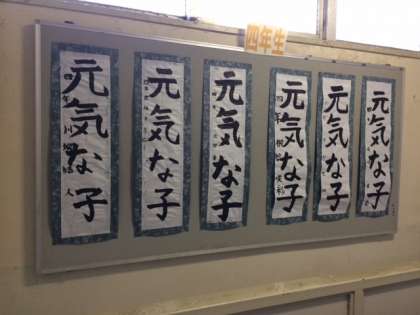 四年生
元気な子
元気な子
元気な子
元気な子
元気な子
元気な子